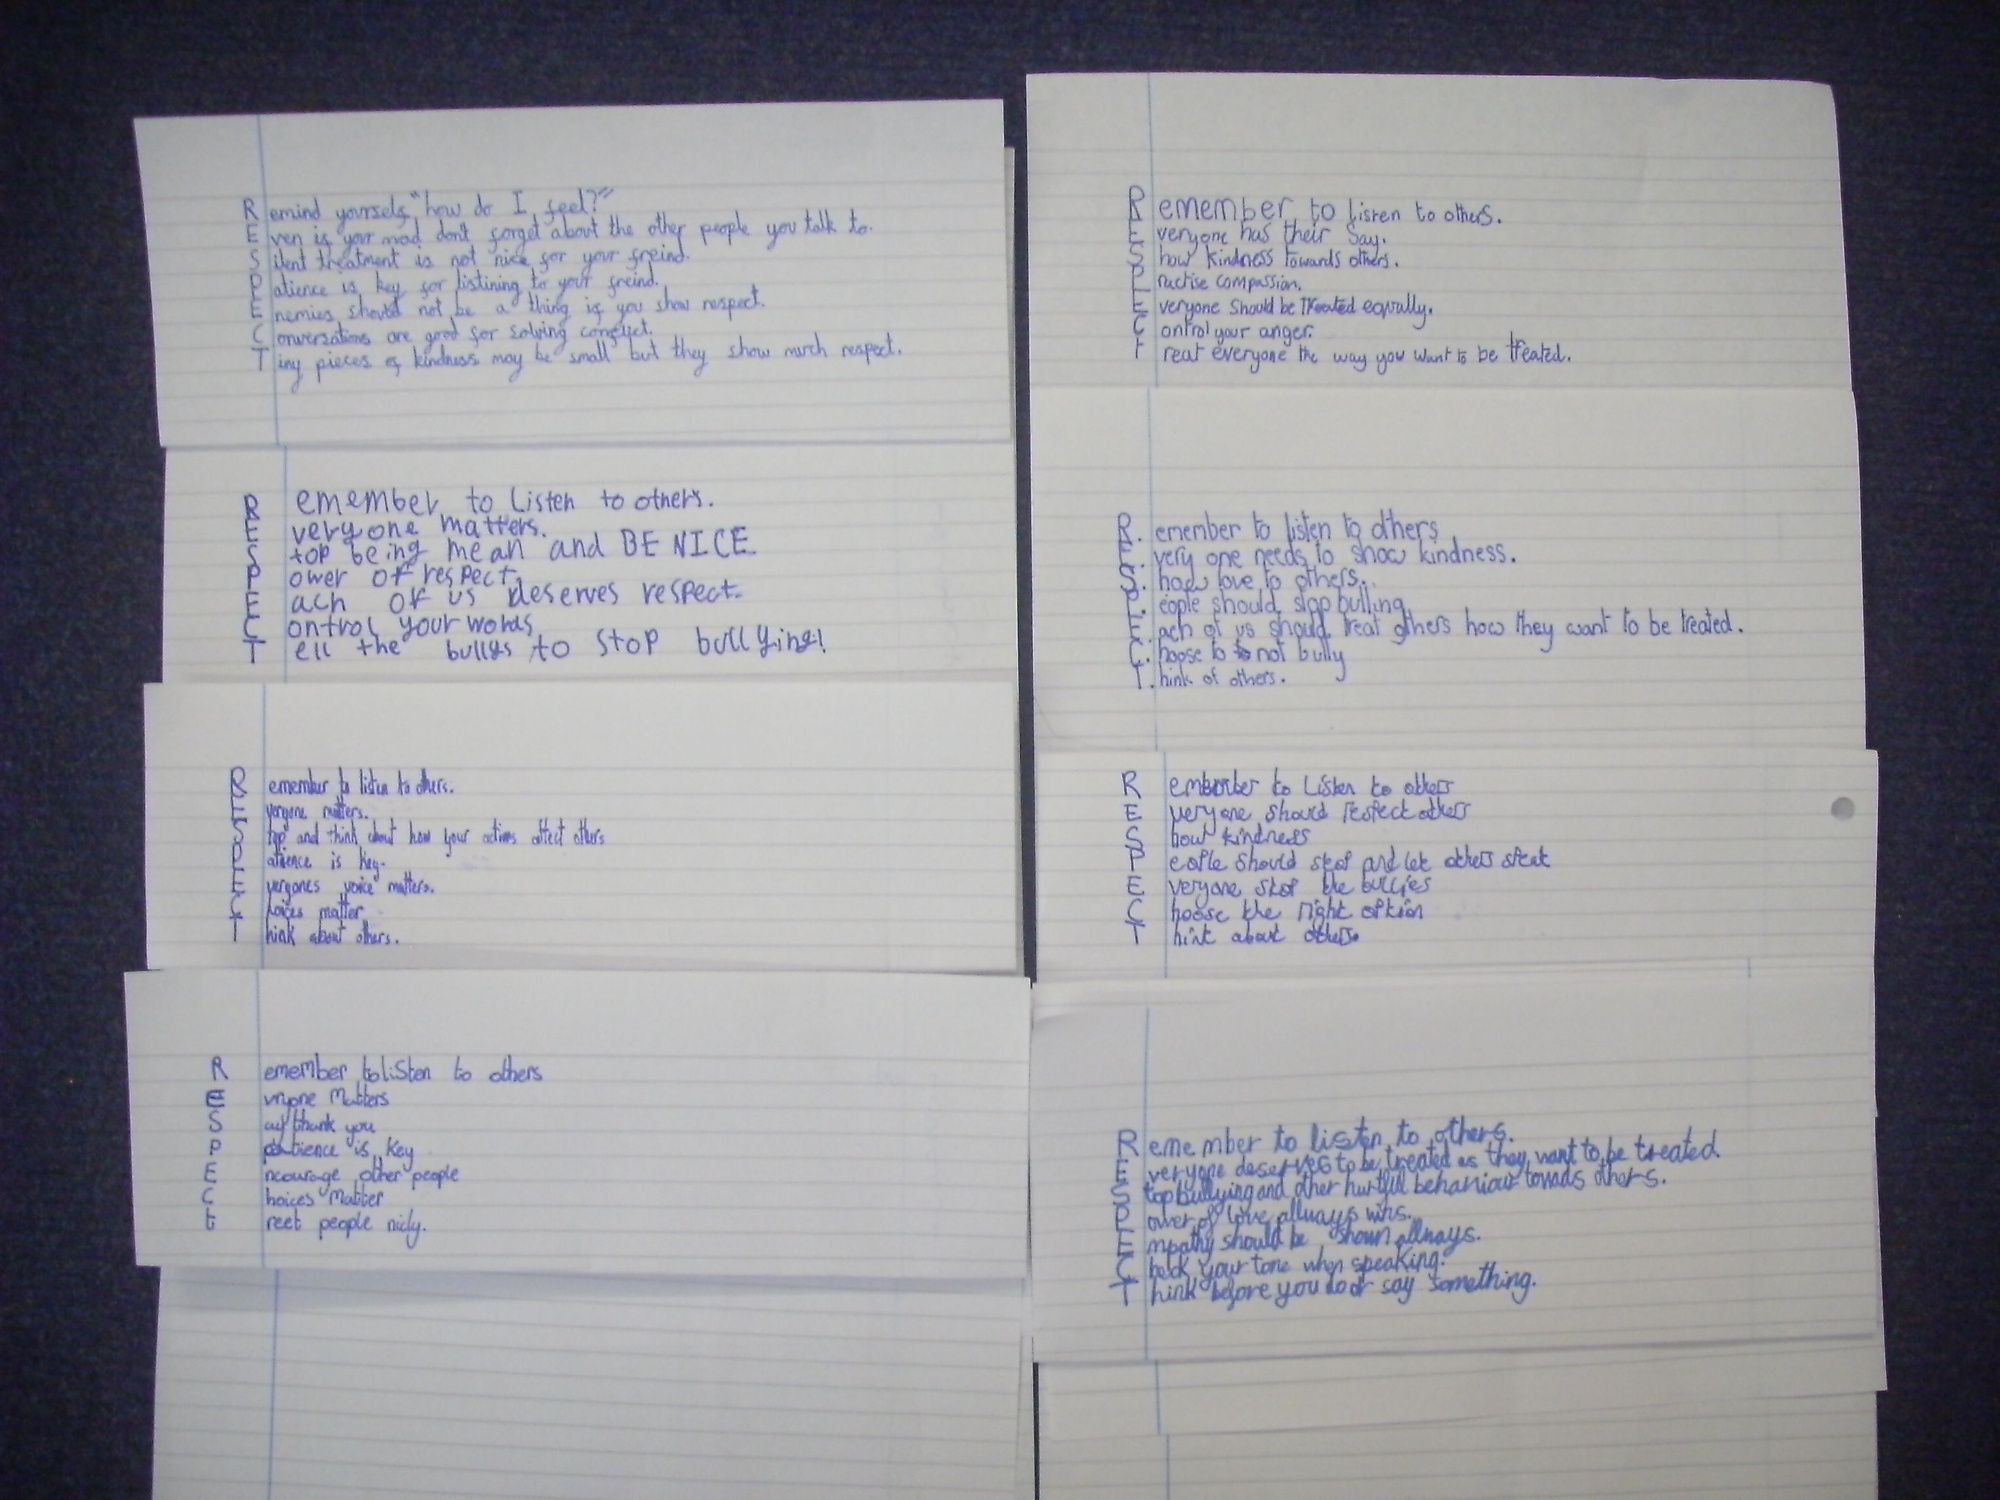 Remind yourself, "how do I feel?"
Even if your mad, don't forget about the other people you talk to.
Silent treatment is not nice for your freind.
Patience is key for listining to your freind.
Enemies should not be a thing if you show respect.
Conversations are good for solving conflict.
Tiny pieces of kindness may be small but they show much respect.
Remember to listen to others.
Everyone matters.
Stop being mean and BE NICE
Power of respect.
Each of us deserves respect.
Control your words
Tell the bullys to stop bullying!
Remember to listen to others.
Everyone matters.
Stop and think about how your actions affect others
Patience is key.
Everyones voice matters.
Choices matter
Think about others.
Remember to liSten to others
Evryone Matters
Say thank you
P patience is key
Encourage other people
Choices Matter
treet people nicly.
Remember to listen to others.
Everyone has their say.
Show kindness towards others.
Practise compassion.
Everyone should be treated equally.
Control your anger.
Treat everyone the way you want to be treated.
R. emember to listen to others
E. very one needs to show kindness.
S. how love to others.
P. eople should stop bulling
E. ach of us should treat others how they want to be treated.
C. hoose to not bully
T. hink of others.
Remember to Listen to others
Everyone should respect others
Show kindness
People should stop and let others speak
Everyone stop the bullies
Choose the right option
Think about others.
Remember to listen to others.
Everyone deserves to be treated as they want to be treated.
Stop bullying and other hurtful behaviour towads others.
Power of love allways wins.
Empathy should be shown allways.
Check your tone when speaking.
Think before you do or say something.